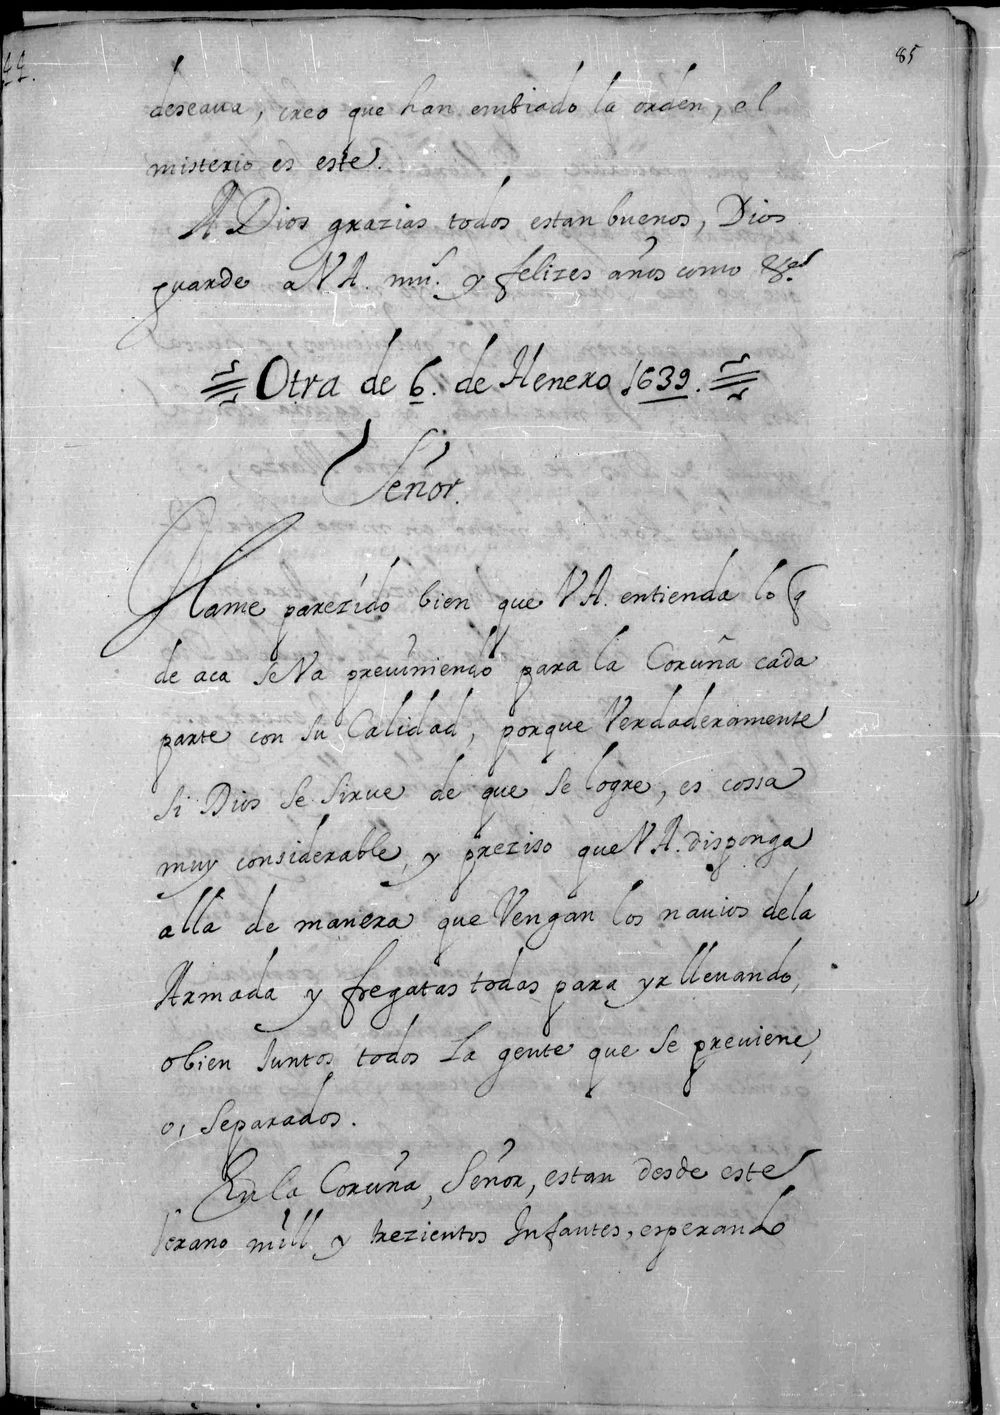 85
44.
deseaua, creo que han embiado la orden, el
misterio es este.
A Dios grazias todos estan buenos, Dios
guarde a VA. mu.s y felizes años como
Otra de 6. de Henero 1639.
Señor.
Hame parezido bien que VA. entienda lo q
de aca se Va preuiniendo para la Coruña cada
parte con su Calidad, porque Verdaderamente
si Dios se sirue de que se logre, es cossa
muy considerable, y preziso que VA. disponga
alla de manera que Vengan los nauios dela
Armada y fregatas todas para yr lleuando,
o bien Juntos todos La gente que se preuiene,
o, separados.
En la Coruña, Señor, estan desde este
Verano mill y trezientos Infantes, esperando